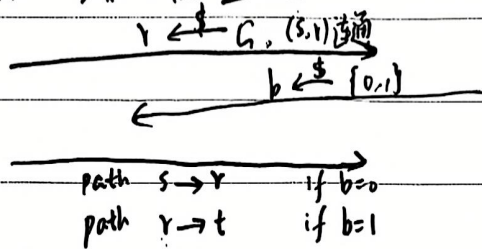 r ←$ G, (s,r)连通
b ←$ {0,1}
path s→r if b=0
path r→t if b=1